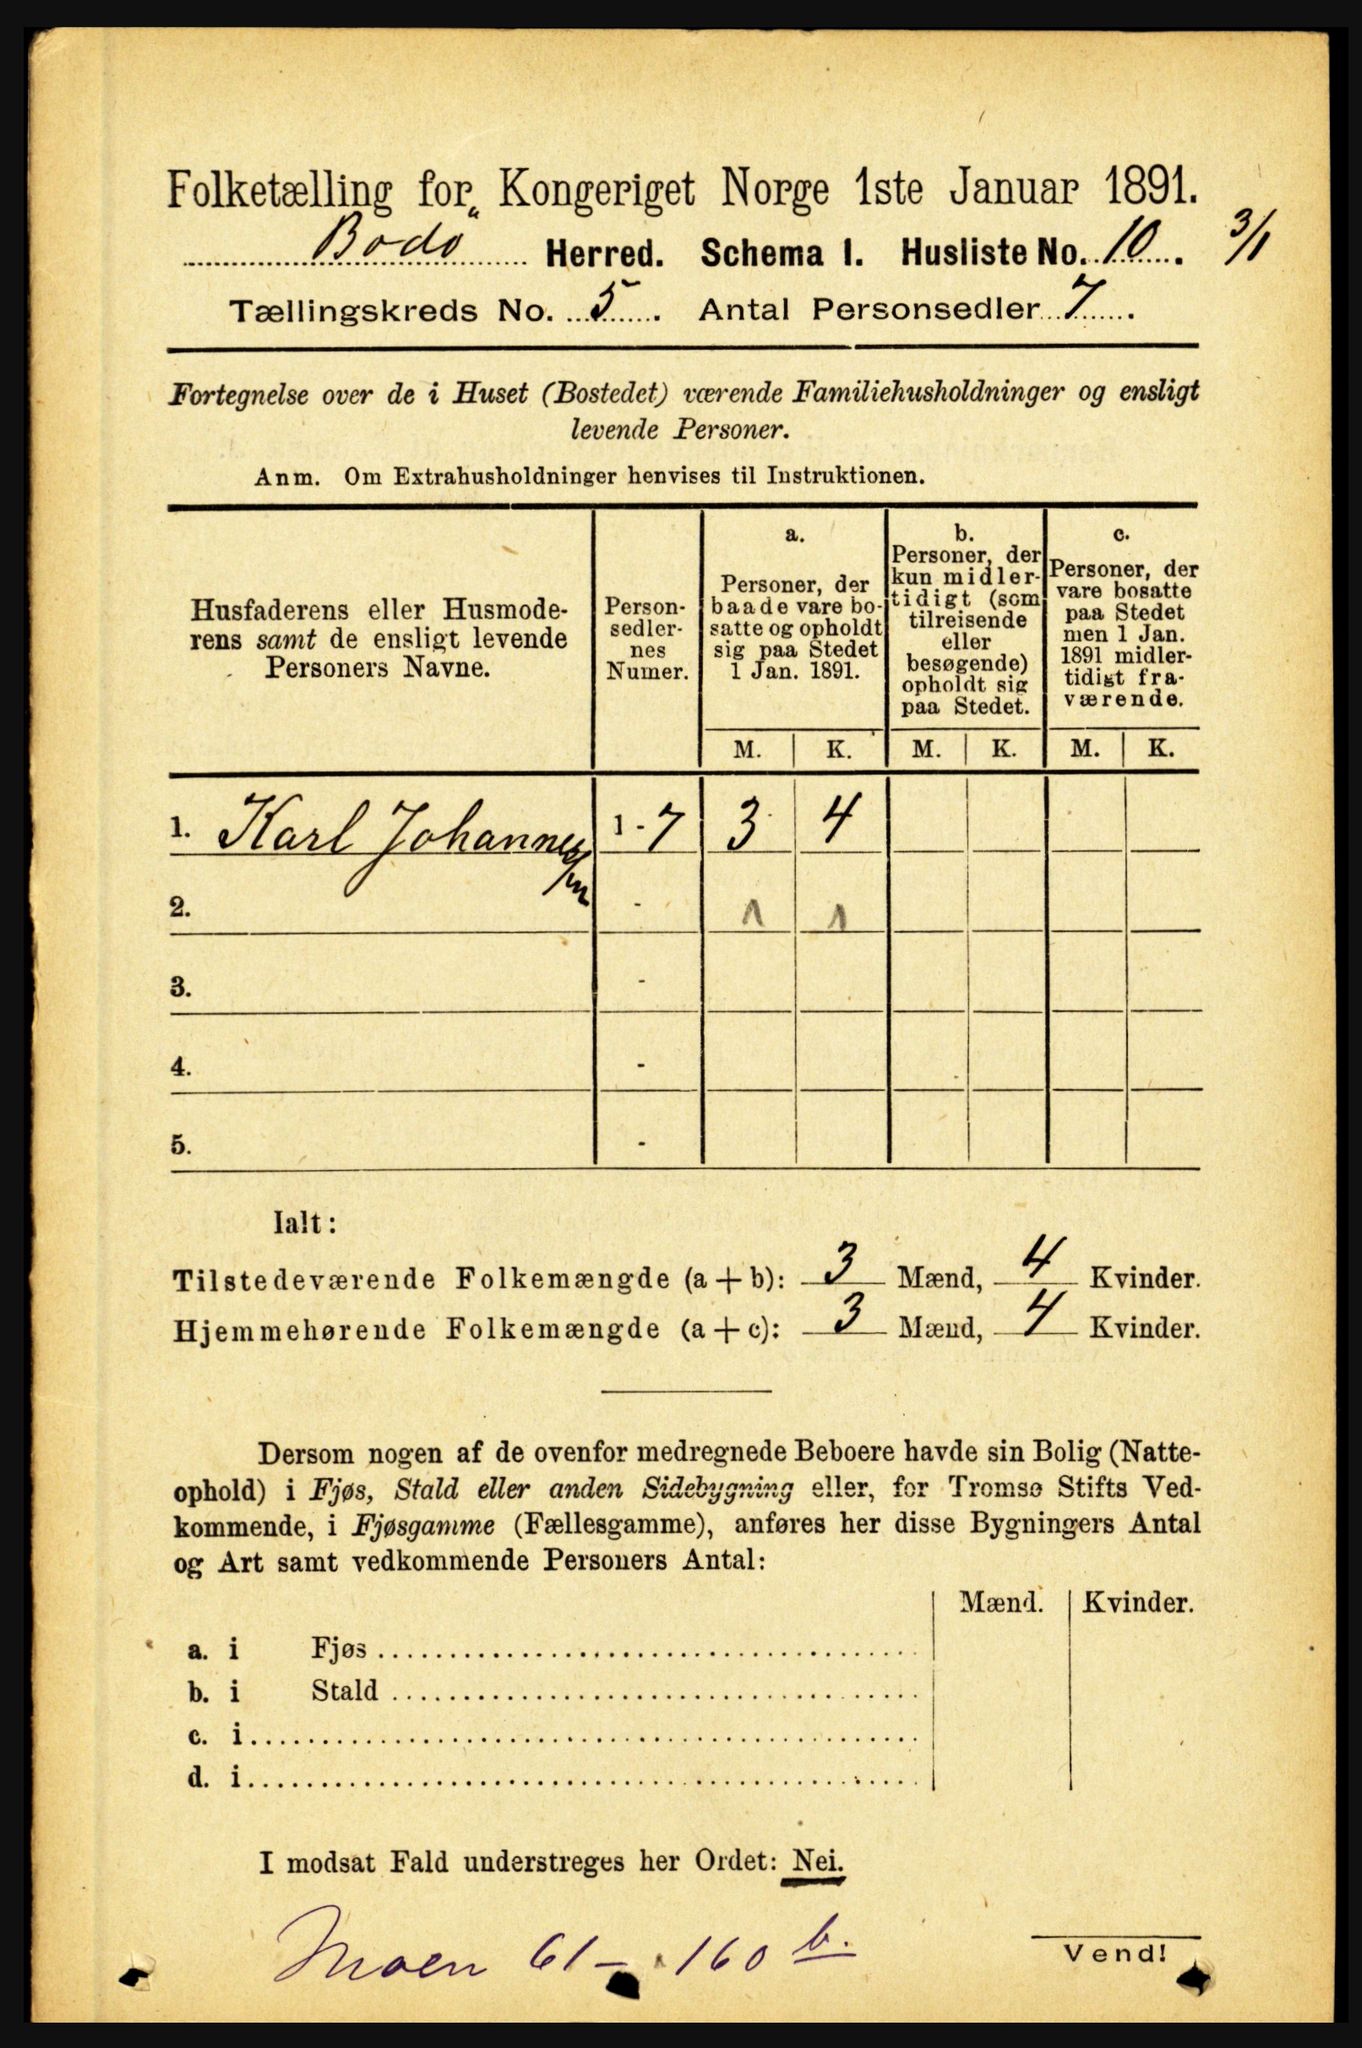 Folketælling for Kongeriget Norge 1ste Januar 1891.
Bodø Herred. Schema 1. Husliste No. 10. 3/1
Tællingskreds No. 5. Antal Personsedler 7.
Fortegnelse over de i Huset (Bostedet) værende Familiehusholdninger og ensligt
levende Personer.
Anm. Om Extrahusholdninger henvises til Instruktionen.
Husfaderens eller Husmode-
rens samt de ensligt levende
Personers Navne.
Person-
sedler-
nes
Numer.
a.
Personer, der
baade vare bo-
satte og opholdt
sig paa Stedet
1 Jan. 1891.
b.
Personer, der
kun midler-
tidigt (som
tilreisende
eller
besøgende)
opholdt sig
paa Stedet.
c.
Personer, der
vare bosatte
paa Stedet
men 1 Jan.
1891 midler-
tidigt fra-
værende.
M. K. M. K. M. K.
1. Karl Johannes/en 1-7 3 4
2. - 1 1
3. -
4. -
5. -
Ialt:
Tilstedeværende Folkemængde (a+b): 3 Mænd, 4 Kvinder.
Hjemmehørende Folkemængde (a+c): 3 Mænd, 4 Kvinder.
Dersom nogen af de ovenfor medregnede Beboere havde sin Bolig (Natte-
ophold) i Fjøs, Stald eller anden Sidebygning eller, for Tromsø Stifts Ved-
kommende, i Fjøsgamme (Fællesgamme), anføres her disse Bygningers Antal
og Art samt vedkommende Personers Antal:
Mænd. Kvinder.
a. i Fjøs
b. i Stald
c. i
d. i
I modsat Fald understreges her Ordet: Nei.
Moen 61 - 160 b.
Vend!